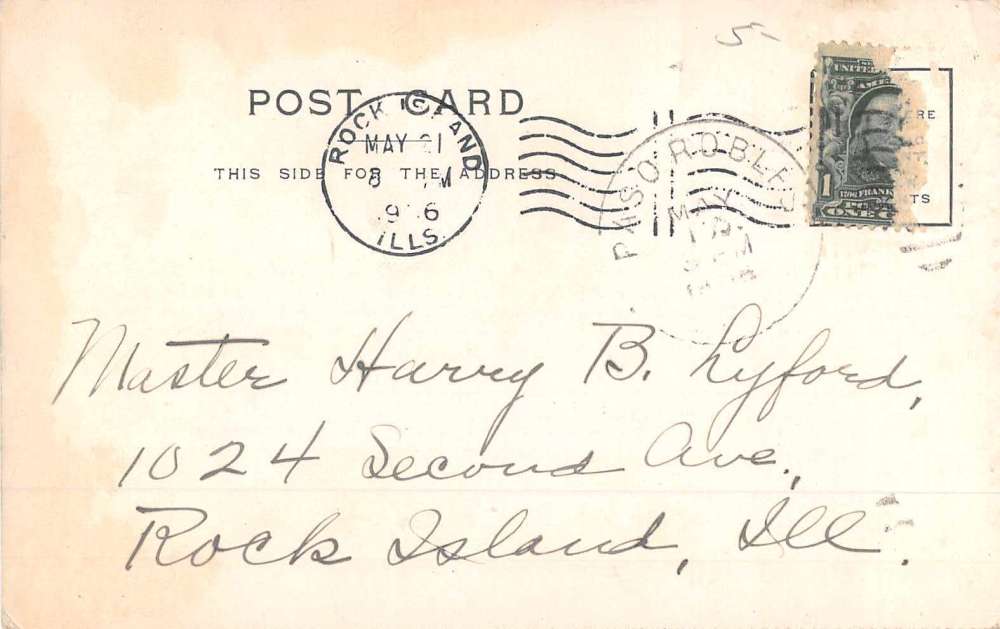 5-
POST CARD
THIS SIDE FOR THE ADDRESS
ROCK ISLAND
MAY 21
8 M
ILLS.
PASO ROBLES
MAY
UNITED
1
FRANK
ONE
ERE
TS
Master Harry B. Lyford,
1024 Second Ave.,
Rock Island, Ill.